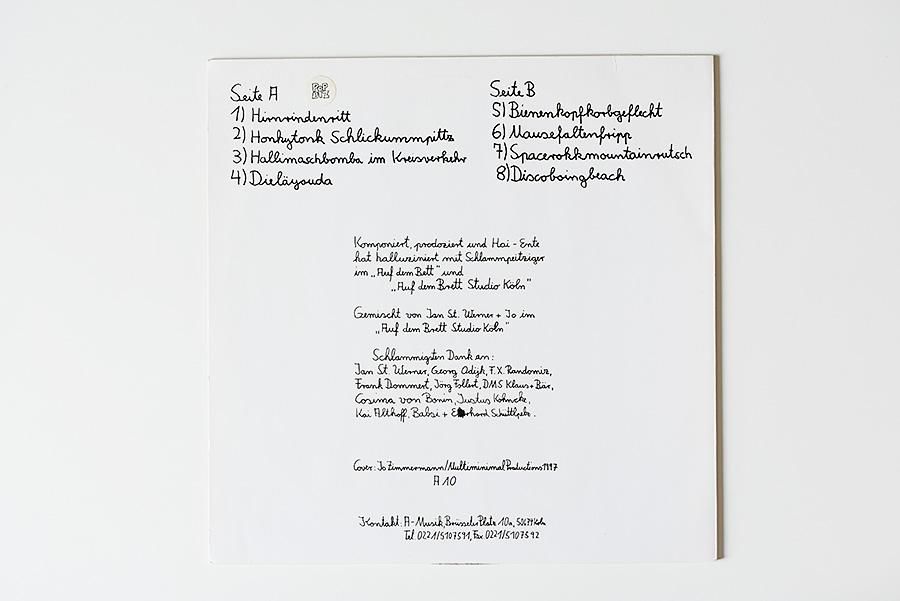 Seite A
1) Hirnrindenritt
2) Honkytonk Schlickummpittz
3) Hallimaschbomba im Kreisverkehr
4) Dieläysuda
Seite B
5) Bienenkopfkorbgeflecht
6) Mausefaltenfripp
7) Spacerokkmountainrutsch
8) Discoboingbeach
Komponiert, prodoziert und Hai - Ente
hat halluziniert mit Schlammpeitziger
im „Auf dem Bett" und
„Auf dem Brett Studio Köln"
Gemischt von Jan St. Werner + Jo im
„Auf dem Brett Studio Köln"
Schlammigsten Dank an:
Jan St. Werner, Georg Odijk, F.X. Randomiz,
Frank Dommert, Jörg Follert, DMS Klaus + Bär,
Cosima von Bonin, Justus Köhncke,
Kai Althoff, Babsi + Eberhard
Cover: Jo Zimmermann/Multiminimal Productions 1997
A 10
Kontakt: A-Musik, Brüsseler Platz 10a, 50674 Köln
Tel. 0221/5107591, Fax 0221/5107592